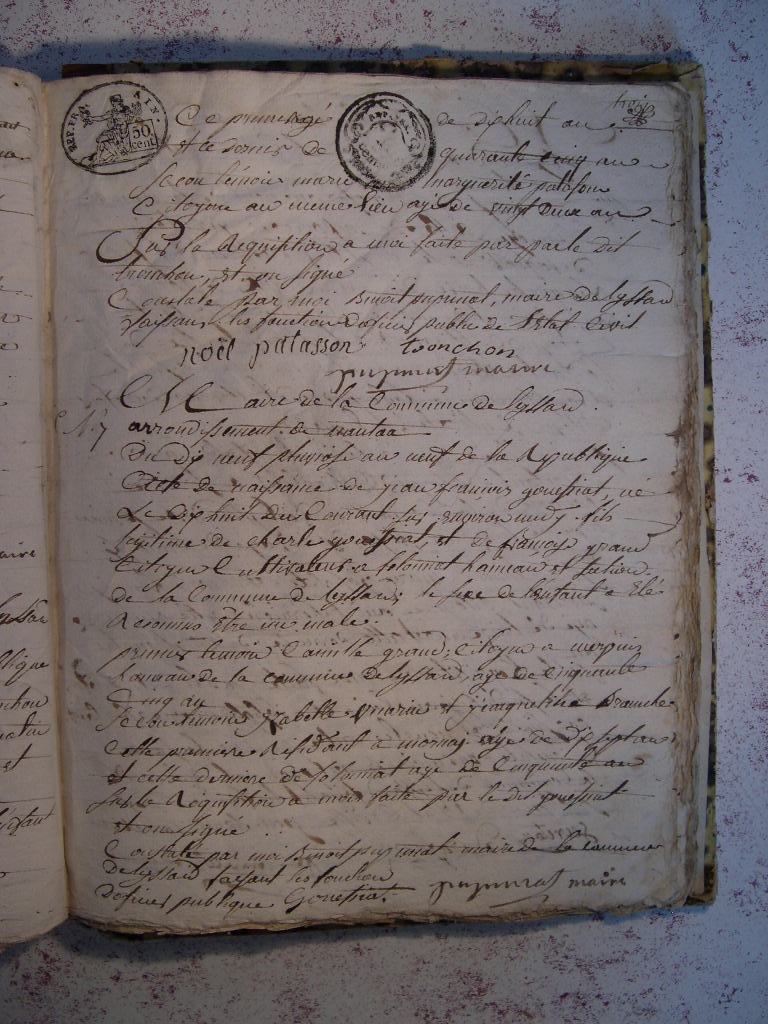 REP. FRA. AIN.
50 cent
trois
Ce de dixhuit an
et ce dernié de quarante cinq an
Secon témoin marie marguerite palason
Citoyene au meme lieu agé de vingt deux an
Sur la Requisition a moi faite par par le dit
tronchon, et on signé
Constaté par moi Benoit pupunat, maire de lyssard
faissant les fonction dofisié public de l'Etat Civil
noël patasson tronchon
pupunat maire
Maire de la Commune de lyssard
N. 7 arrondissement de nantua
Du Dix neuf pluviose an neuf de la Republique
acte de naissance de jean francois gouessiat, né
Le dixhuit du Courant fils
legitime de charle gouessiat, et de françoise grand
Citoyen Cultivateur a solomiat hameau et
de la Commune de lyssard, le sexe de lenfant a Eté
Reconnus être un male.
premier temoin Camille grand, Citoyen a
hameau de la commune de lyssard, age de Cinquante
Cinq an
Secon temoin izabelle marie et jacqueline Branche
Cette premiere Residant a mornay agé de
et cette derniere de solomiat agé de Cinquante an
Sur la Requisition a moi faite par le dit gouessiat
et on signé
Constaté par moi Benoit pupunat maire de la commune
de lyssard fayant les fonction
dofisié publique Gouessiat pupunat maire